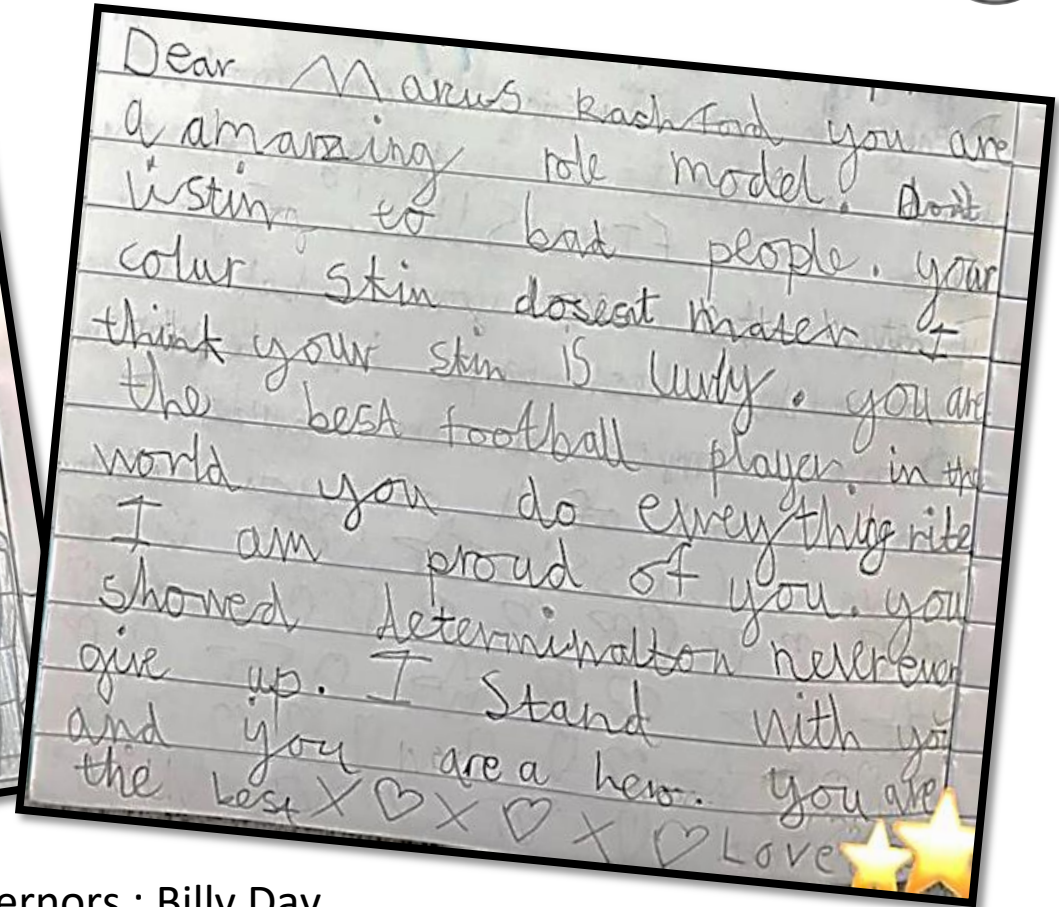 Dear Marus Rachford you are
a amanzing role model. Don't
listin to bad people. your
colur skin dosent mater I
think your skin is luvly. you are
the best football player in the
world you do evrey thing rite
I am proud of you. you
showed determinalton never ever
give up. I Stand with you
and you are a hero. you are
the best X ♡ X ♡ X ♡ Love
ernors : Billy Day